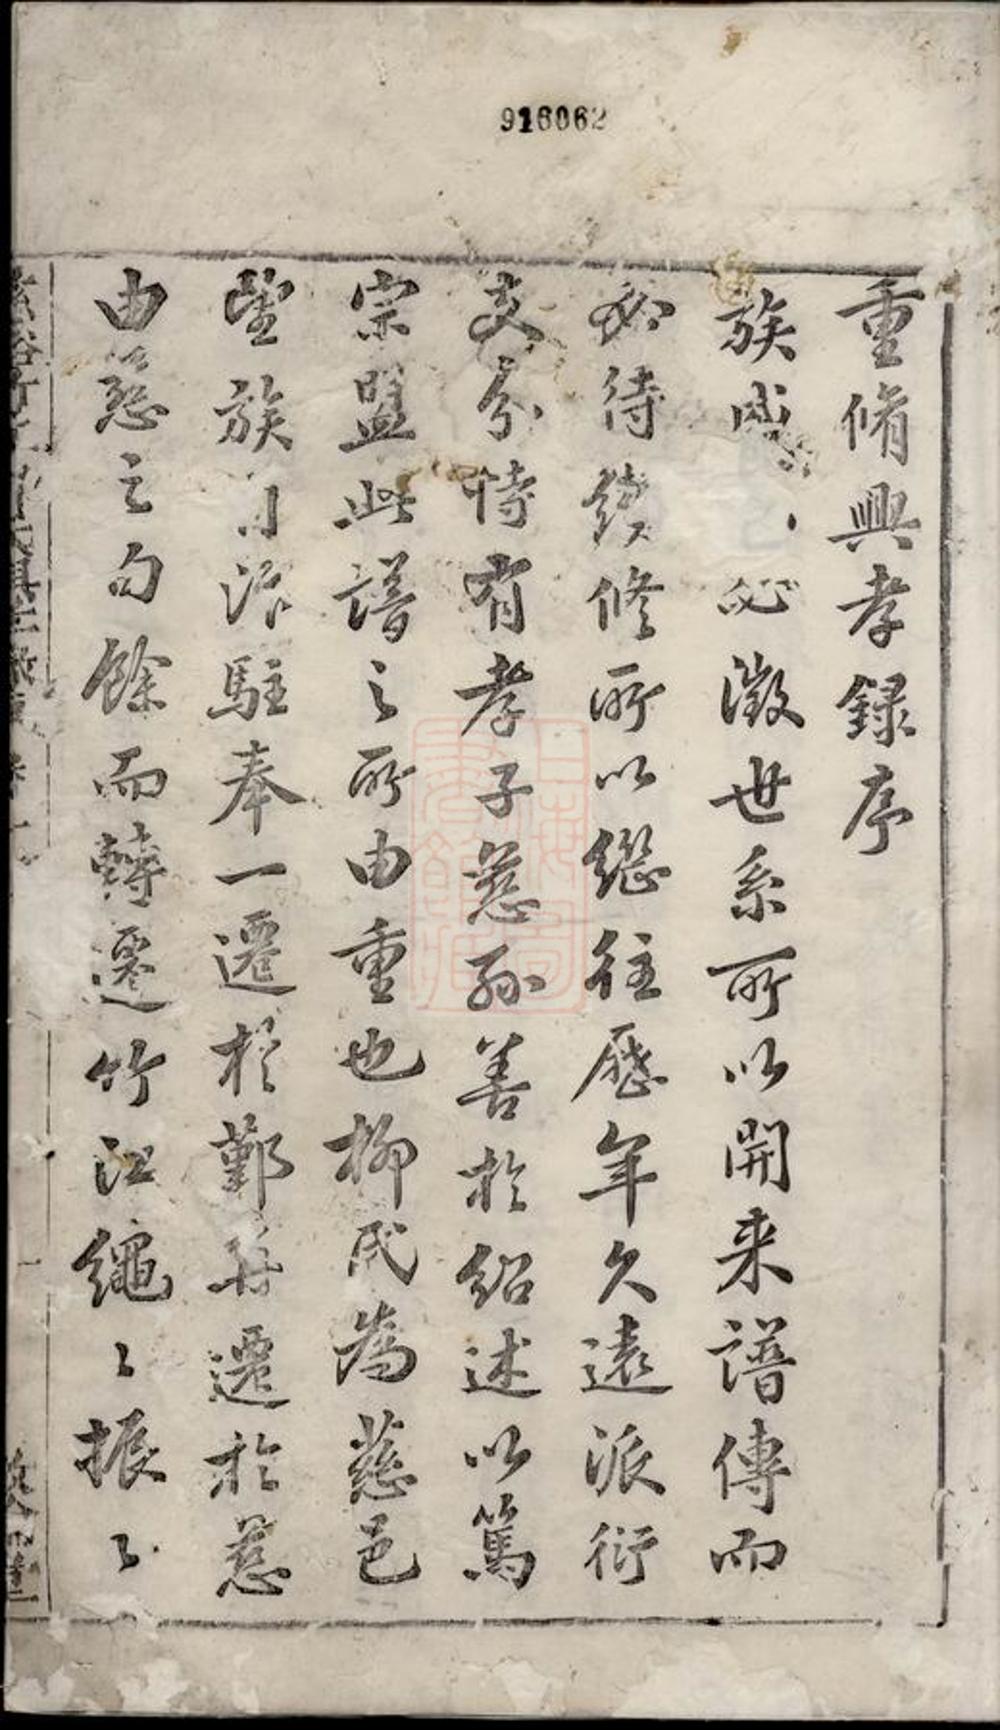 916062
重脩興孝錄序
族成必徵世系所以開来譜傳而
必待續修所以繼往歷年久遠派衍
支分恃有孝子慈孫善於紹述以篤
宗盟此譜之所由重也柳氏為慈邑
望族自汾駐奉一遷於鄞再遷於慈
由慈之句餘而轉遷竹江繩〻振〻